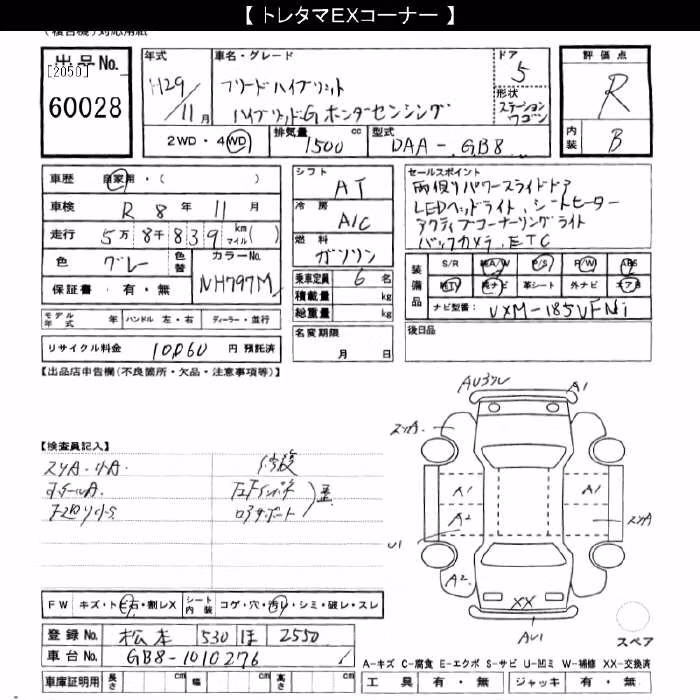 【 トレタマEXコーナー 】
(複合機)対応用紙
出品No. [2050] 60028
年式 H29/11月
車名・グレード フリードハイブリッド
ハイブリッドG ホンダセンシング
ドア 5
形状 ステーションワゴン
評価点 R
内装 B
2WD・4WD 排気量 1500 cc 型式 DAA-GB8
車歴 自家用・( )
車検 R 8年 11月
走行 5万8千839 km マイル( )
色 グレー 色替 カラーNo. NH797M
保証書:有・無
シフト AT
冷房 A/C
燃料 ガソリン
乗車定員 6 名
積載量 kg
総重量 kg
セールスポイント
両側パワースライドドア
LEDヘッドライト、シートヒーター
アクティブコーナーリングライト
バックカメラ、ETC
装備品 S/R 純A/W P/S P/W ABS
純TV 純ナビ 革シート 外ナビ エアB
ナビ型番: VXM-185VFNi
モデル年式 年 ハンドル 左・右 ディーラー・並行
名変期限 月 日
後日品
リサイクル料金 10,060 円 預託済
【出品店申告欄(不良箇所・欠品・注意事項等)】
【検査員記入】
スリA.小A. 修復
ホイールA.
ロアサポート
AU3 A1
A1 A1
A2
U1
A2
XX
AU1
スペア
FW キズ・トビ石・割レX シート内装 コゲ・穴・汚レ・シミ・破レ・スレ
登録No. 松本 530 ほ 2550
車台No. GB8-1010276
車庫証明用 長さ cm 幅 cm 高さ cm
A-キズ C-腐食 E-エクボ S-サビ U-凹ミ W-補修 XX-交換済
工具 有・無 ジャッキ 有・無